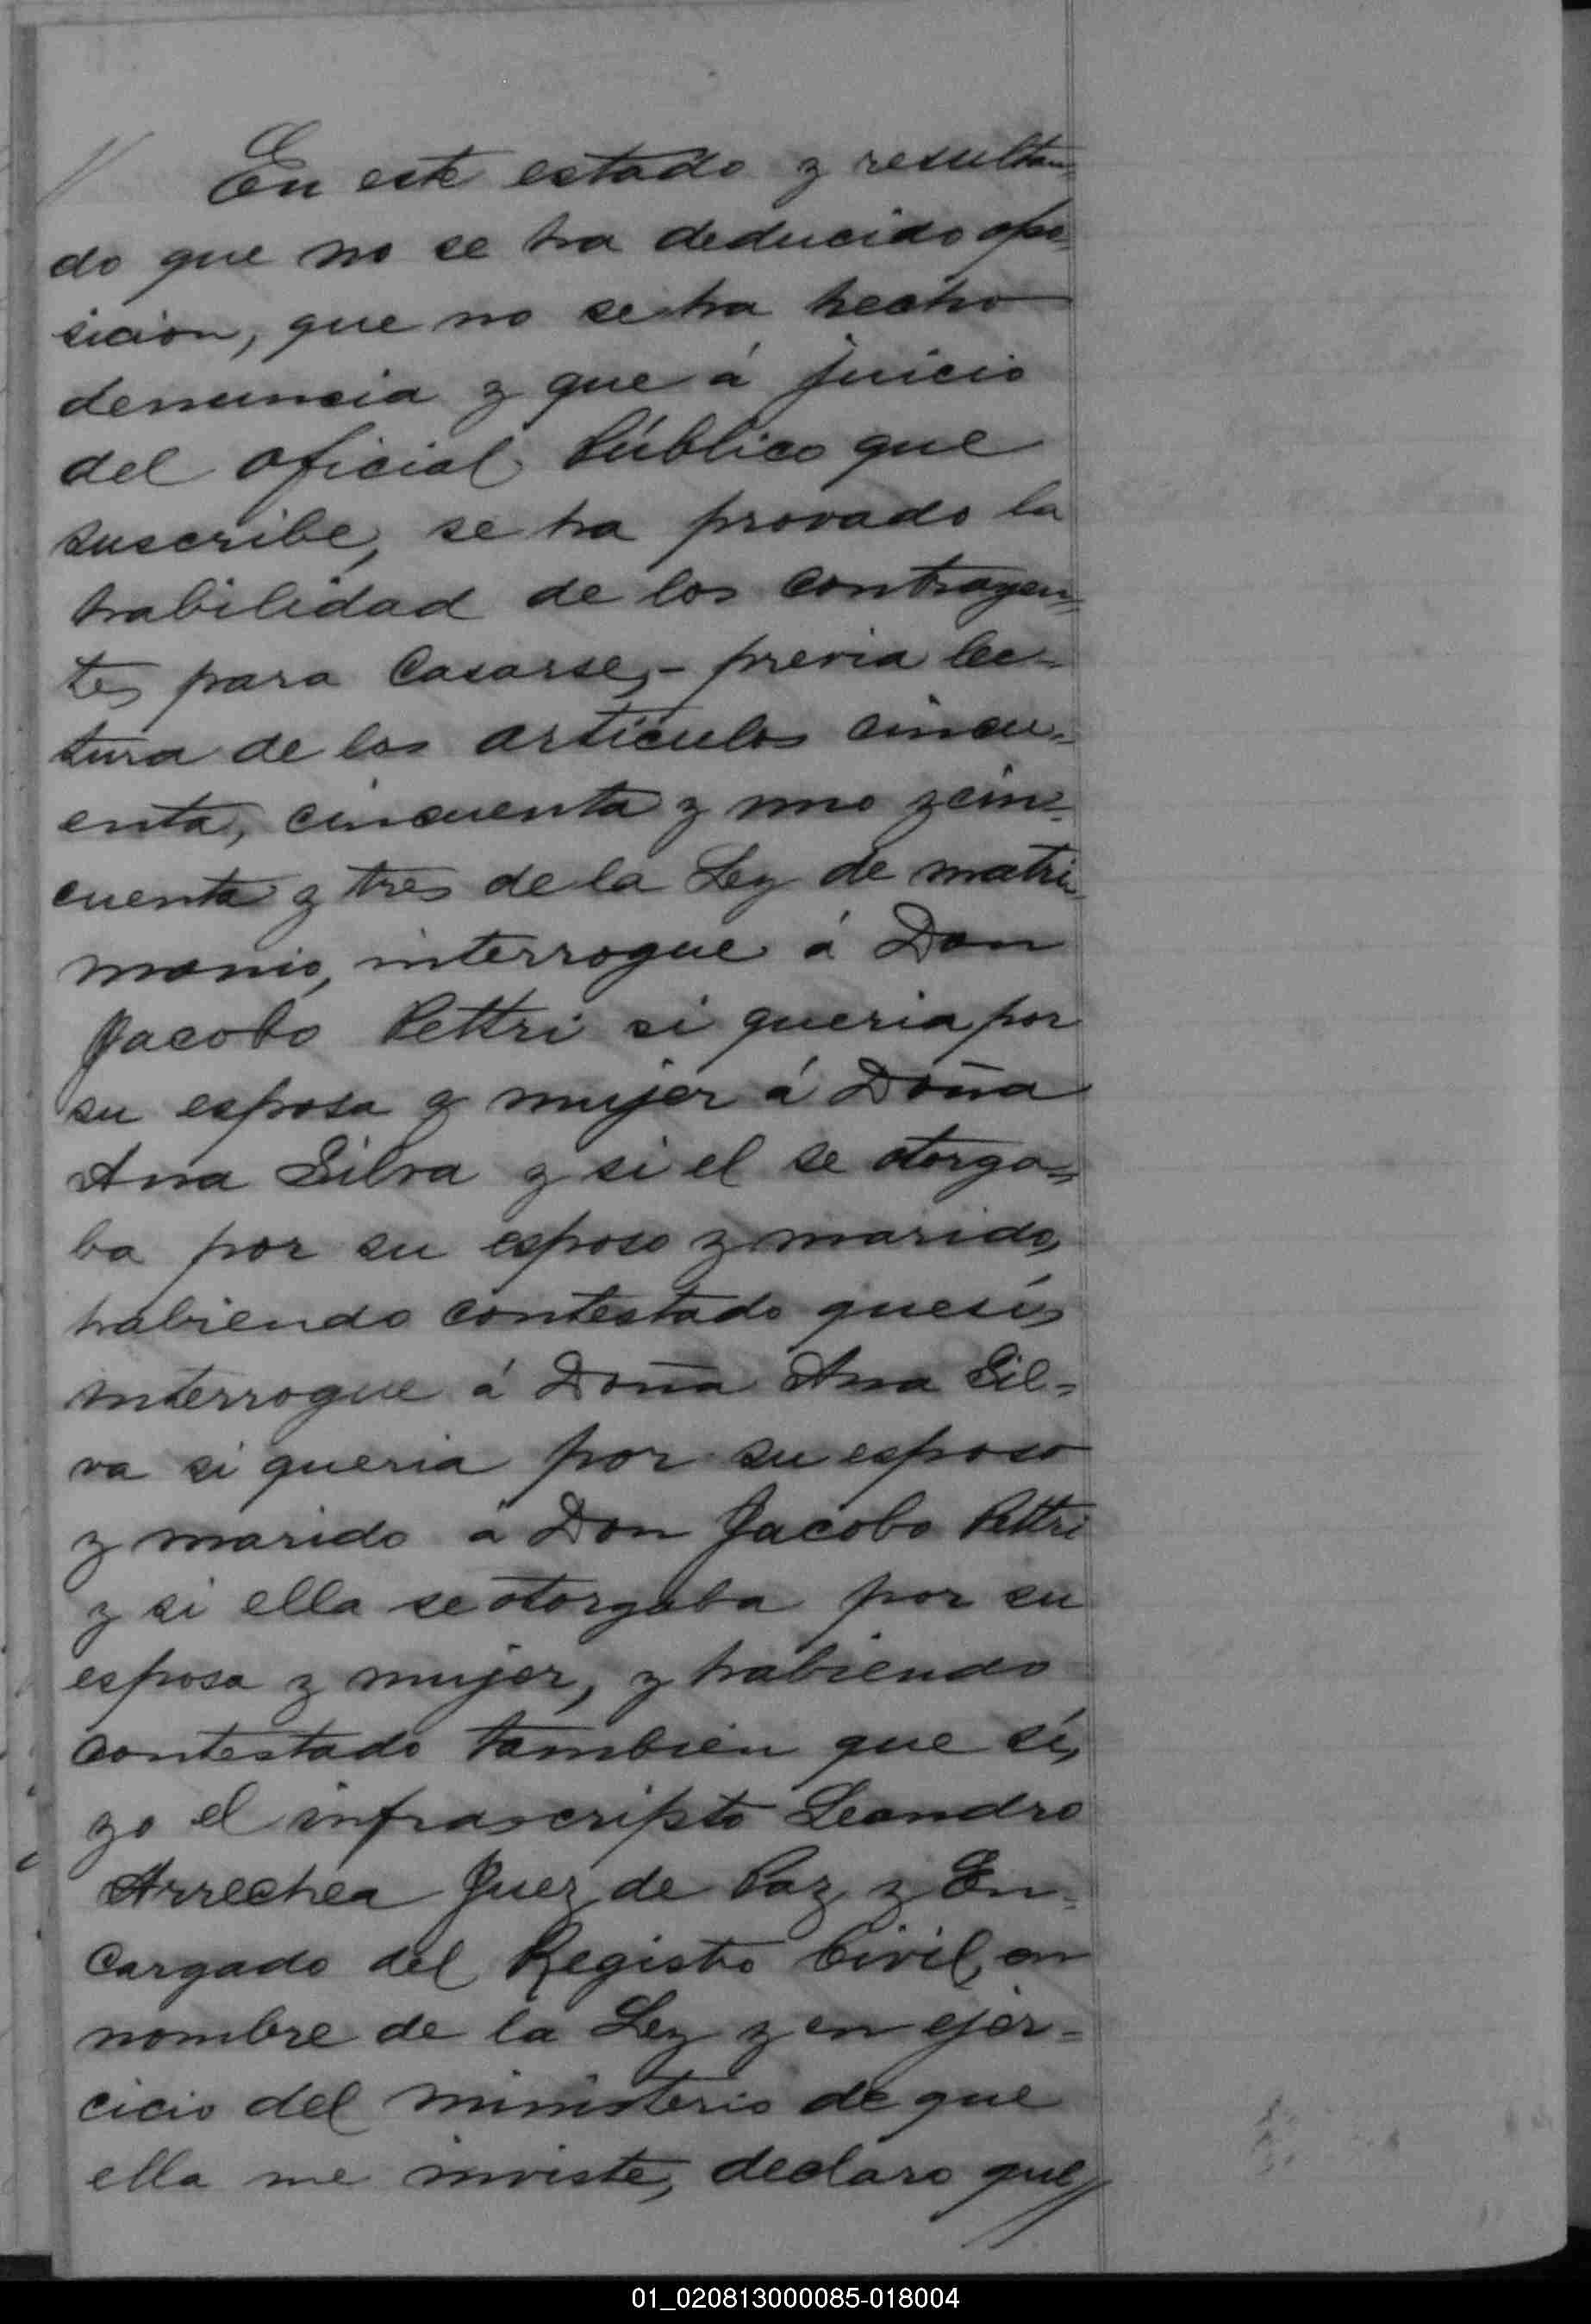 En este estado y resultan=
do que no se ha deducido opo=
sicion, que no se ha hecho
denuncia y que á juicio
del oficial Público que
suscribe, se ha provado la
habilidad de los contrayen=
tes para Casarse,- previa lec=
tura de los artículos cincu=
enta, cincuenta y uno y cin=
cuenta y tres de la Ley de matri=
monio, interrogue á Don
Jacobo Pettri si queria por
su esposa y mujer á Doña
Ana Silva y si el se otorga=
ba por su esposo y marido,
habiendo contestado que sí,
interrogue á Doña Ana Sil=
va si queria por su esposo
y marido á Don Jacobo Pettri
y si ella se otorgaba por su
esposa y mujer, y habiendo
contestado tambien que sí,
yo el infrascripto Leandro
Arrechea Juez de Paz y En=
cargado del Registro Civil, en
nombre de la Ley y en ejer=
cicio del ministerio de que
ella me inviste, declaro que//
01_020813000085-018004